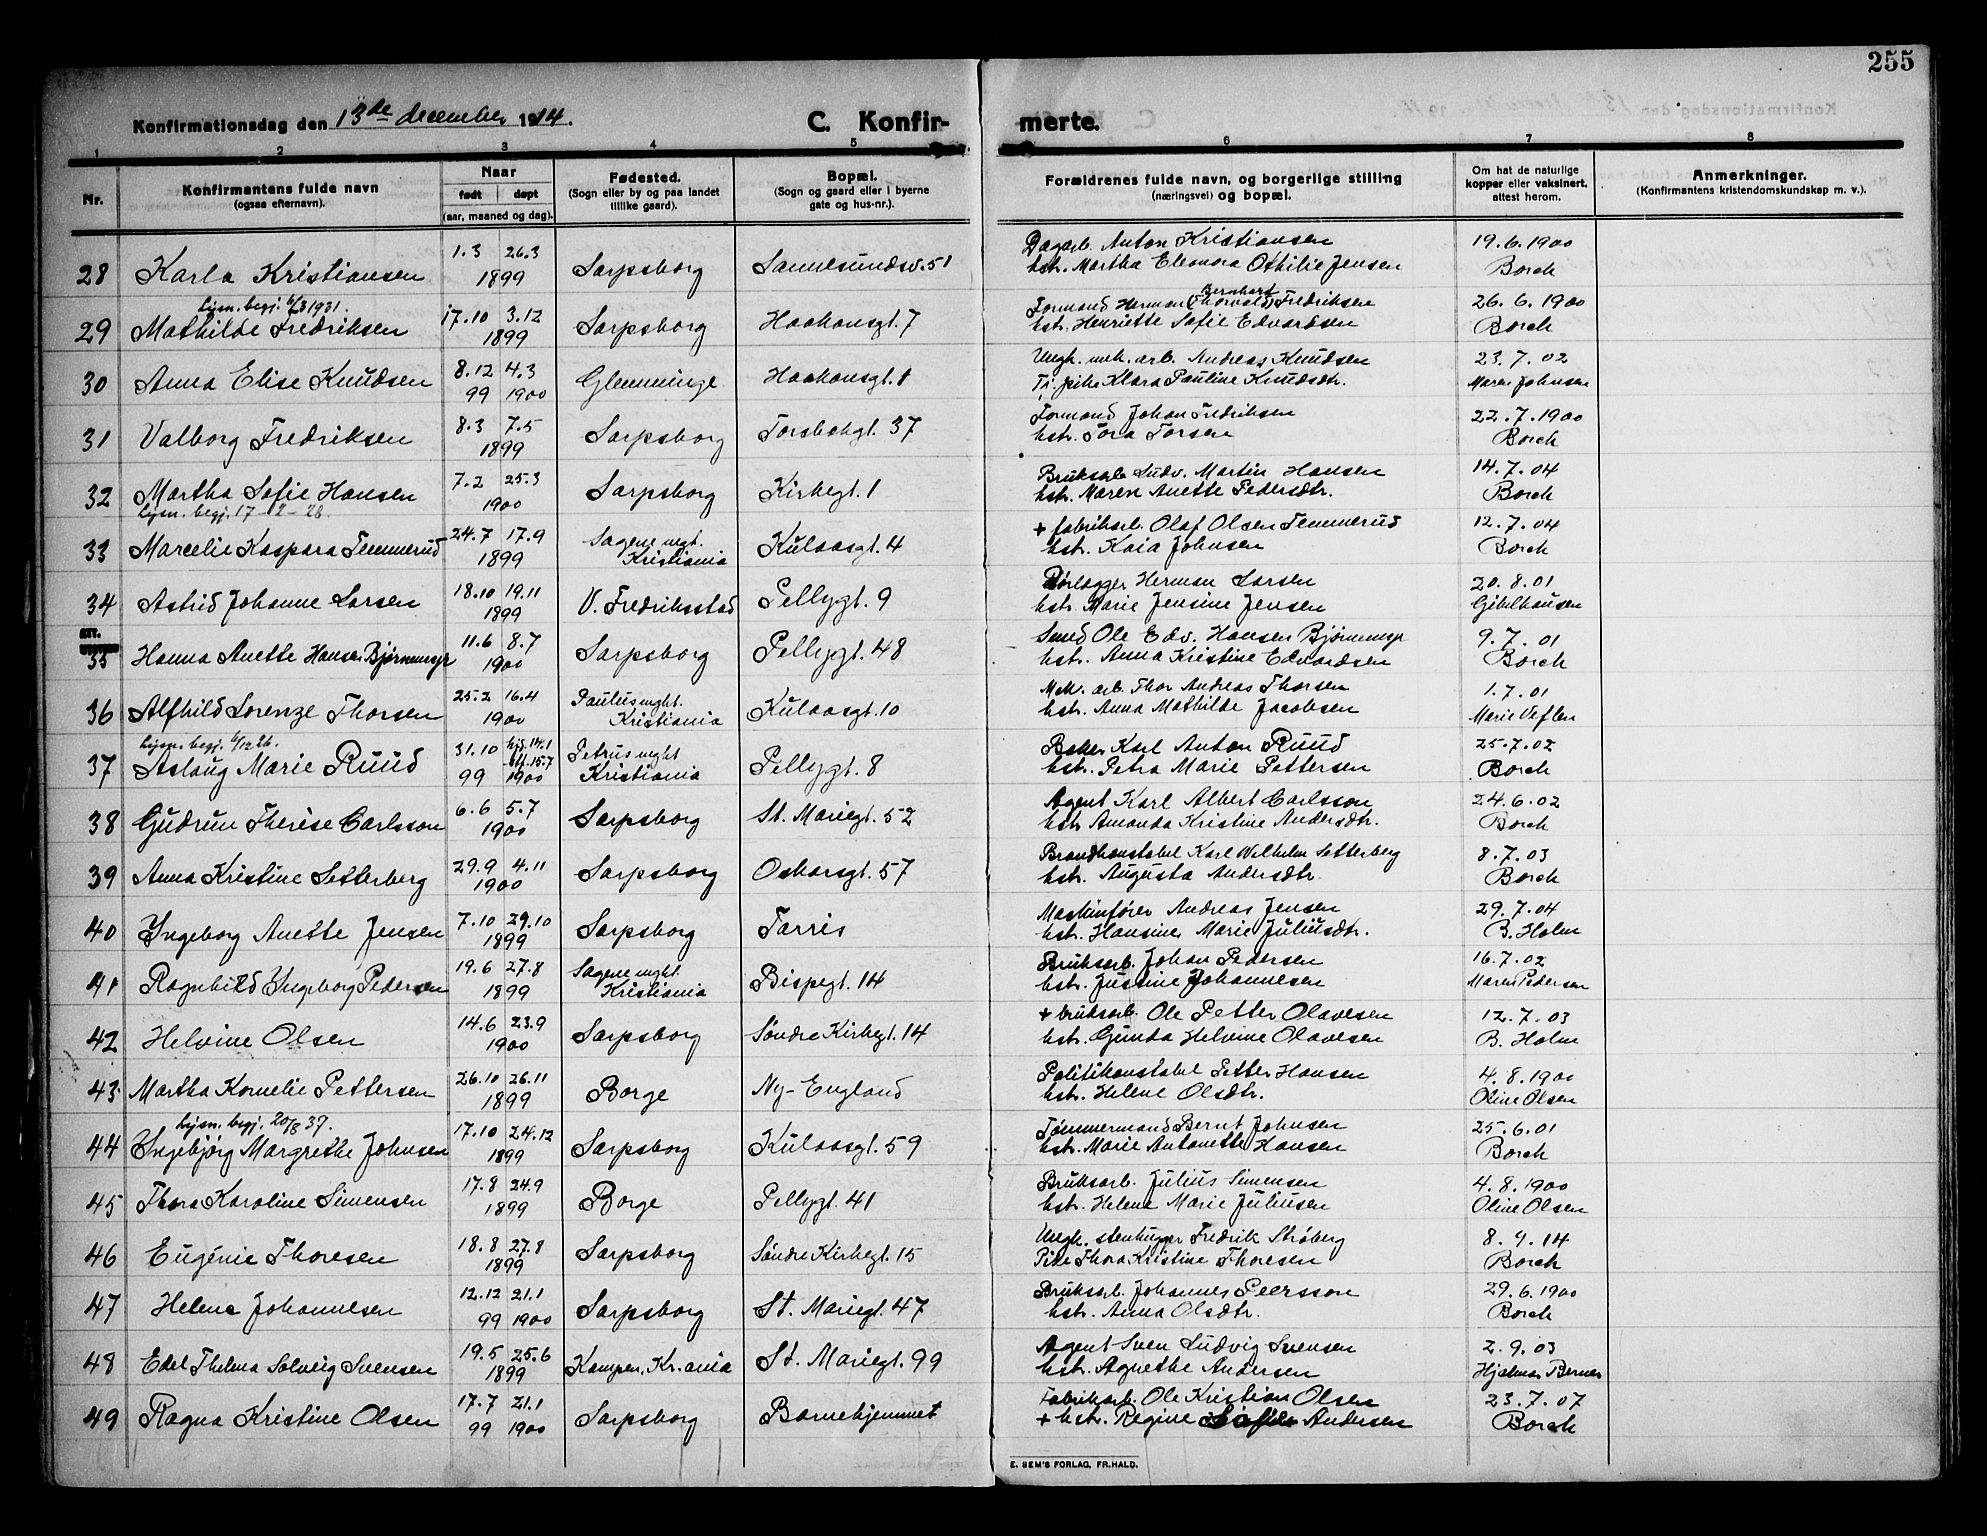 255
Konfirmationsdag den 13de december 1914. C. Konfir- merte.
1 2 3 4 5 6 7 8
Nr. Konfirmantens fulde navn (ogsaa efternavn). Naar født døpt (aar, maaned og dag). Fødested. (Sogn eller by og paa landet tillike gaard). Bopæl. (Sogn og gaard eller i byerne gate og hus-nr.). Forældrenes fulde navn, og borgerlige stilling (næringsvei) og bopæl. Om hat de naturlige kopper eller vaksinert, attest herom. Anmerkninger. (Konfirmantens kristendomskundskap m. v.).
1.3 26.3 Dagarb. Anton Kristiansen 19.6.1900
28 Karla Kristiansen 1899 Sarpsborg Sannesundsv. 51 hstr. Martha Eleonora Othilie Jensen Borch
Lysn. begj. 6/3 1931. Bernhart
17.10 3.12 Formand Herman (Thorvald) Fredriksen 26.6.1900
29 Mathilde Fredriksen 1899 Sarpsborg Haakonsgt. 7 hstr. Henriette Sofie Edvardsen Borch
8.12 4.3 Ungk. mek. arb. Andreas Knudsen 23.7.02
30 Anna Elise Knudsen 99 1900 Glemminge Haakonsgt. 1 Tj. pike Klara Pauline Knudsdtr. Maren Johnsen
8.3 7.5 Formand Johan Fredriksen 22.7.1900
31 Valborg Fredriksen 1899 Sarpsborg Torsbekgt. 37 hstr. Tora Torsen Borch
7.2 25.3 Bruksarb. Ludv. Martin Hansen 14.7.04
32 Martha Sofie Hansen 1900 Sarpsborg Kirkegt. 1 hstr. Maren Anette Pedersdtr. Borch
Lysn. begj. 17-2-28.
24.7 17.9 Sagene mgt. + fabrikarb. Olaf Olsen Temmerud 12.7.04
33 Marcelie Kaspara Temmerud 1899 Kristiania Kulaasgt. 4 hstr. Kaia Johnsen Borch
18.10 19.11 Rørlægger Herman Larsen 20.8.01
34 Astrid Johanne Larsen 1899 V. Fredriksstad Pellygt. 9 hstr. Marie Jensine Jensen Gihlhausen
ATT.
11.6 8.7 Smed Ole Edv. Hansen Bjørnemyr 9.7.01
35 Hanna Anette Hansen Bjørnemyr 1900 Sarpsborg Pellygt. 48 hstr. Anna Kristine Edvardsen Borch
25.2 16.4 Paulus mght. Mek. arb. Thor Andreas Thorsen 1.7.01
36 Alfhild Lorenze Thorsen 1900 Kristiania Kulaasgt. 10 hstr. Anna Mathilde Jacobsen Marie Veflen
Lysn. begj. 6/12 26.
31.10 hjd. 14.1 st. 15.7 Petrus mght Baker Karl Anton Ruud 25.7.02
37 Aslaug Marie Ruud 99 1900 Kristiania Pellygt. 8 hstr. Petra Marie Pettersen Borch
6.6 5.7 Agent Karl Albert Carlsson 24.6.02
38 Gudrun Therese Carlsson 1900 Sarpsborg St. Mariegt. 52 hstr. Amanda Kristine Andersdtr. Borch
29.9 4.11 Brandkonstabel Karl Wilhelm Setterberg 8.7.03
39 Anna Kristine Setterberg 1900 Sarpsborg Oskarsgt. 57 hstr. Augusta Andersdtr. Borch
7.10 29.10 Maskinfører Andreas Jensen 29.7.04
40 Ingeborg Anette Jensen 1899 Sarpsborg Tarris hstr. Hansine Marie Juliusdtr. B. Holm
19.6 27.8 Sagene mght. Bruksarb. Johan Pedersen 16.7.02
41 Ragnhild Ingeborg Pedersen 1899 Kristiania Bispegt. 14 hstr. Justine Johannesen Maren Pedersen
14.6 23.9 + bruksarb. Ole Petter Olavesen 12.7.03
42 Helvine Olsen 1900 Sarpsborg Søndre Kirkegt. 14 hstr. Gunda Helvine Olavesen B. Holm
26.10 26.11 Politikonstabel Petter Hansen 4.8.1900
43 Martha Kornelie Pettersen 1899 Borge Ny-England hstr. Helene Olsdtr. Oline Olsen
Lysn. begj. 20/8 37.
17.10 24.12 Tømmermand Bernt Johnsen 25.6.01
44 Ingebjørg Margrethe Johnsen 1899 Sarpsborg Kulaasgt. 59 hstr. Marie Antonette Hansen Borch
17.8 24.9 Bruksarb. Julius Simensen 4.8.1900
45 Thora Karoline Simensen 1899 Borge Pellygt. 41 hstr. Helene Marie Juliusen Oline Olsen
18.8 27.8 Ungk. stenhugger Fredrik Strøberg 8.9.14
46 Eugénie Thoresen 1899 Sarpsborg Søndre Kirkegt. 15 Pike Thora Kristine Thoresen Borch
12.12 21.1 Bruksarb. Johannes Peersson 29.6.1900
47 Helene Johannesen 99 1900 Sarpsborg St. Mariegt. 47 hstr. Anna Olsdtr. Borch
19.5 25.6 Agent Sven Ludvig Svensen 2.9.03
48 Edel Thelma Solveig Svensen 1899 Kampen, Kr.ania St. Mariegt. 99 hstr. Agnethe Andersen Hjalmar Berner
17.7 21.1 Fabrikarb. Ole Kristian Olsen 23.7.07
49 Ragna Kristine Olsen 99 1900 Sarpsborg Barnehjemmet + hstr. Regine Sofie Andersen Borch
E. SEM'S FORLAG, FR.HALD.